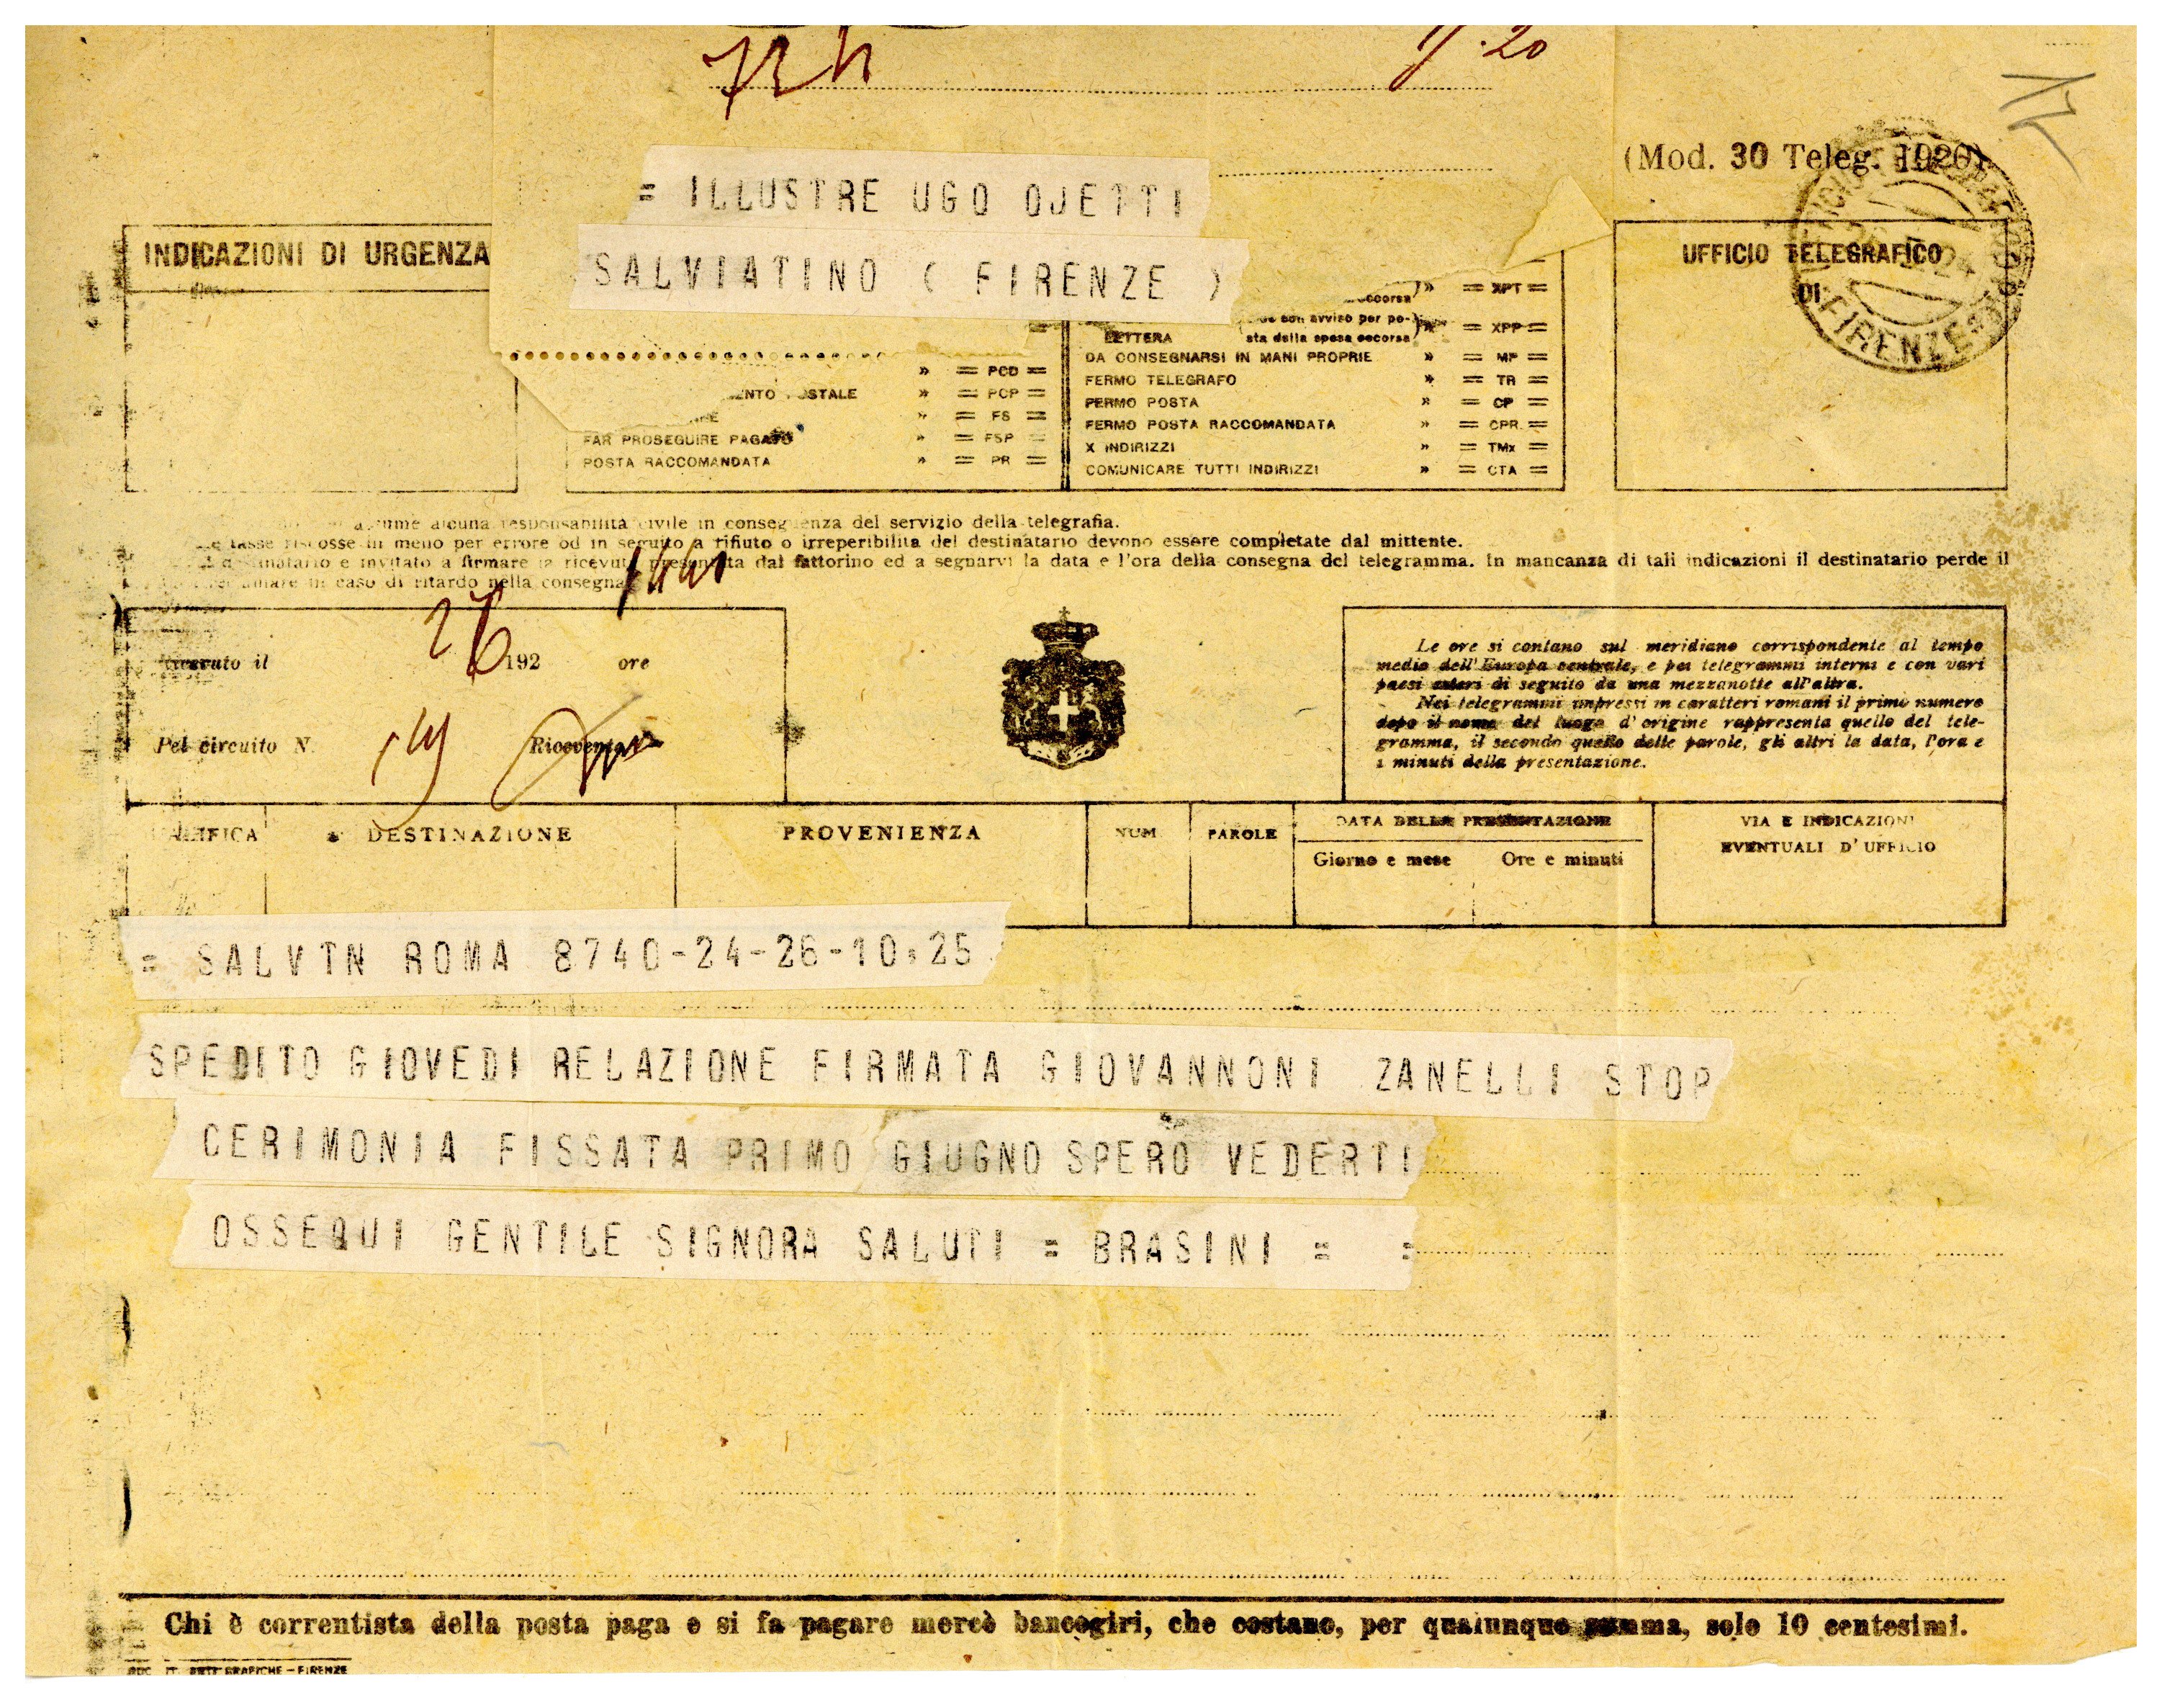 72 h
(Mod. 30 Teleg. 1920)
= ILLUSTRE UGO OJETTI
SALVIATINO ( FIRENZE )
INDICAZIONI DI URGENZA
UFFICIO TELEGRAFICO
DI
FIRENZE
» = XPT =
avviso per po-
LETTERA sta della spesa occorsa » = XPP =
DA CONSEGNARSI IN MANI PROPRIE » = MP =
» = PCD =
FERMO TELEGRAFO » = TR =
STALE » = PCP =
FERMO POSTA » = CP =
» = FS =
FERMO POSTA RACCOMANDATA » = CPR =
FAR PROSEGUIRE PAGATO » = FSP =
X INDIRIZZI » = TMx =
POSTA RACCOMANDATA » = PR =
COMUNICARE TUTTI INDIRIZZI » = CTA =
alcuna responsabilità civile in conseguenza del servizio della telegrafia.
tasse riscosse in meno per errore od in seguito a rifiuto o irreperibilità del destinatario devono essere completate dal mittente.
è invitato a firmare la ricevuta presentata dal fattorino ed a segnarvi la data e l'ora della consegna del telegramma. In mancanza di tali indicazioni il destinatario perde il
in caso di ritardo nella consegna
Ricevuto il 26 192 ore
Pel circuito N. Ricevente
Le ore si contano sul meridiano corrispondente al tempo
medio dell'Europa centrale, e pei telegrammi interni e con vari
paesi esteri di seguito da una mezzanotte all'altra.
Nei telegrammi impressi in caratteri romani il primo numero
dopo il nome del luogo d'origine rappresenta quello del tele-
gramma, il secondo quello delle parole, gli altri la data, l'ora e
i minuti della presentazione.
DESTINAZIONE
PROVENIENZA
NUM
PAROLE
DATA DELLA PRESENTAZIONE
Giorno e mese Ore e minuti
VIA E INDICAZIONI
EVENTUALI D'UFFICIO
= SALVTN ROMA 8740-24-26-10,25
SPEDITO GIOVEDI RELAZIONE FIRMATA GIOVANNONI ZANELLI STOP
CERIMONIA FISSATA PRIMO GIUGNO SPERO VEDERTI
OSSEQUI GENTILE SIGNORA SALUTI = BRASINI = =
Chi è correntista della posta paga e si fa pagare mercè bancogiri, che costano, per qualunque somma, solo 10 centesimi.
ARTI GRAFICHE - FIRENZE